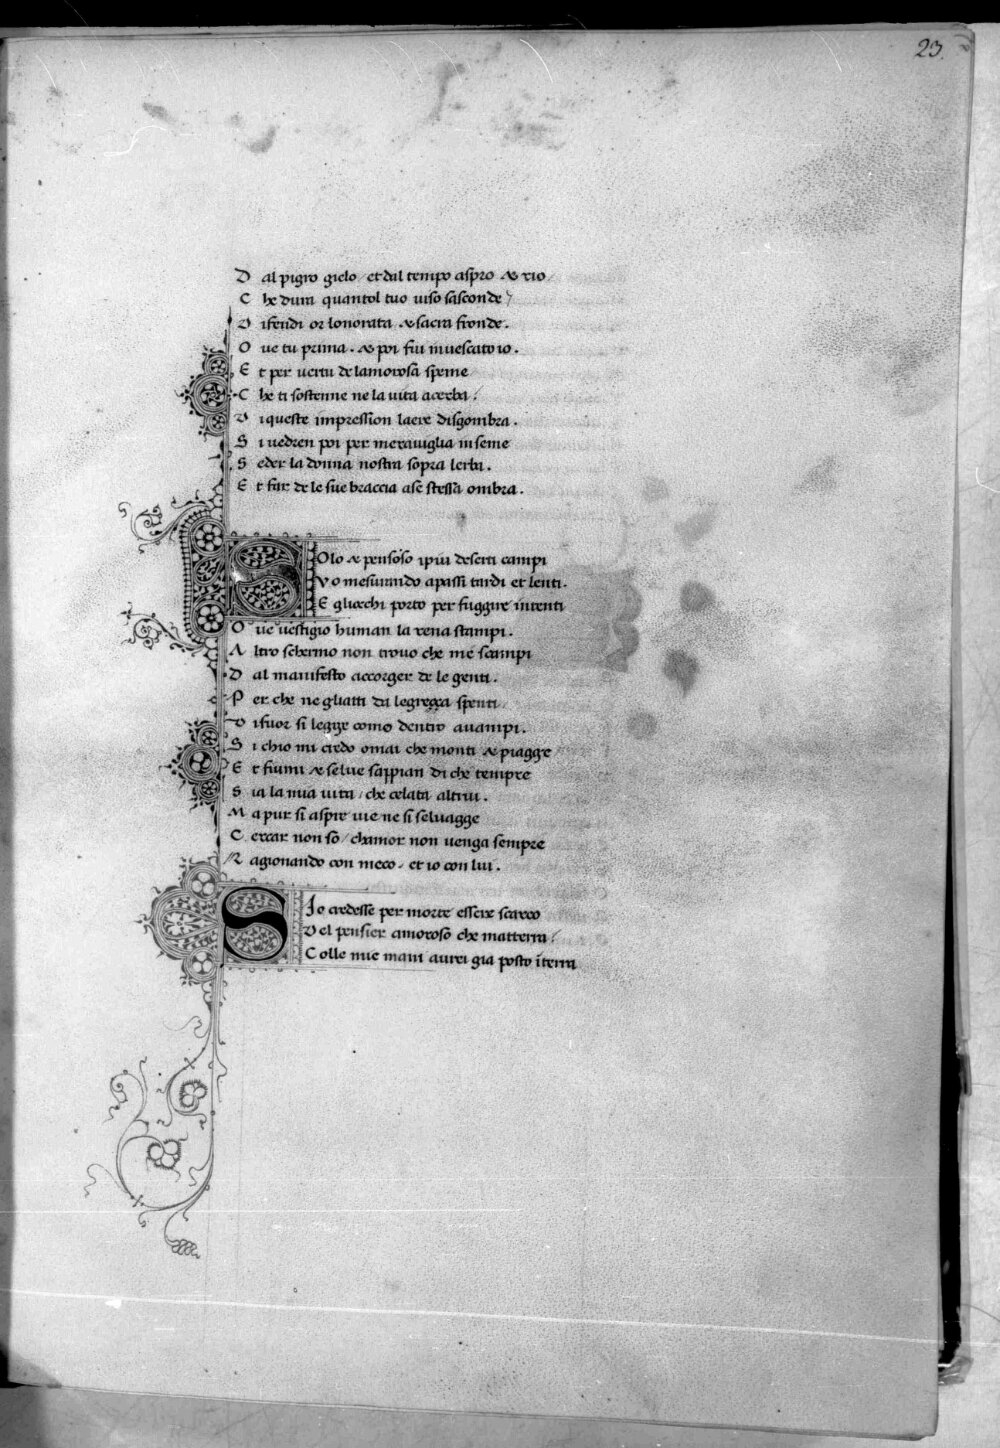 23
D al pigro gielo / et dal tempo aspro & rio
C he dura quantol tuo uiso sasconde /
D ifendi or lonorata & sacra fronde.
O ue tu prima . & poi fui inuescato io .
E t per uertu de lamorosa speme
C he ti sostenne ne la uita acerba /
D i queste impression laere disgombra .
S i uedren poi per merauiglia inseme
S eder la donna nostra sopra lerba .
E t far de le sue braccia ase stessa ombra .
S Olo & pensoso ipiu deserti campi
V o mesurando apassi tardi et lenti .
E gliocchi porto per fuggire intenti
O ue uestigio human la rena stampi .
A ltro schermo non trouo che me scampi
D al manifesto accorger de le genti .
P er che ne gliatti da legrezza spenti
D ifuor si legge como dentro auampi .
S i chio mi credo omai che monti & piagge
E t fiumi & selue sappian di che tempre
S ia la mia uita / che celata altrui .
M a pur si aspre uie ne si seluagge
C ercar non so / chamor non uenga sempre
R agionando con meco / et io con lui .
S Io credesse per morte essere scarco
D el pensier amoroso che matterra /
C olle mie mani aurei gia posto ī terra